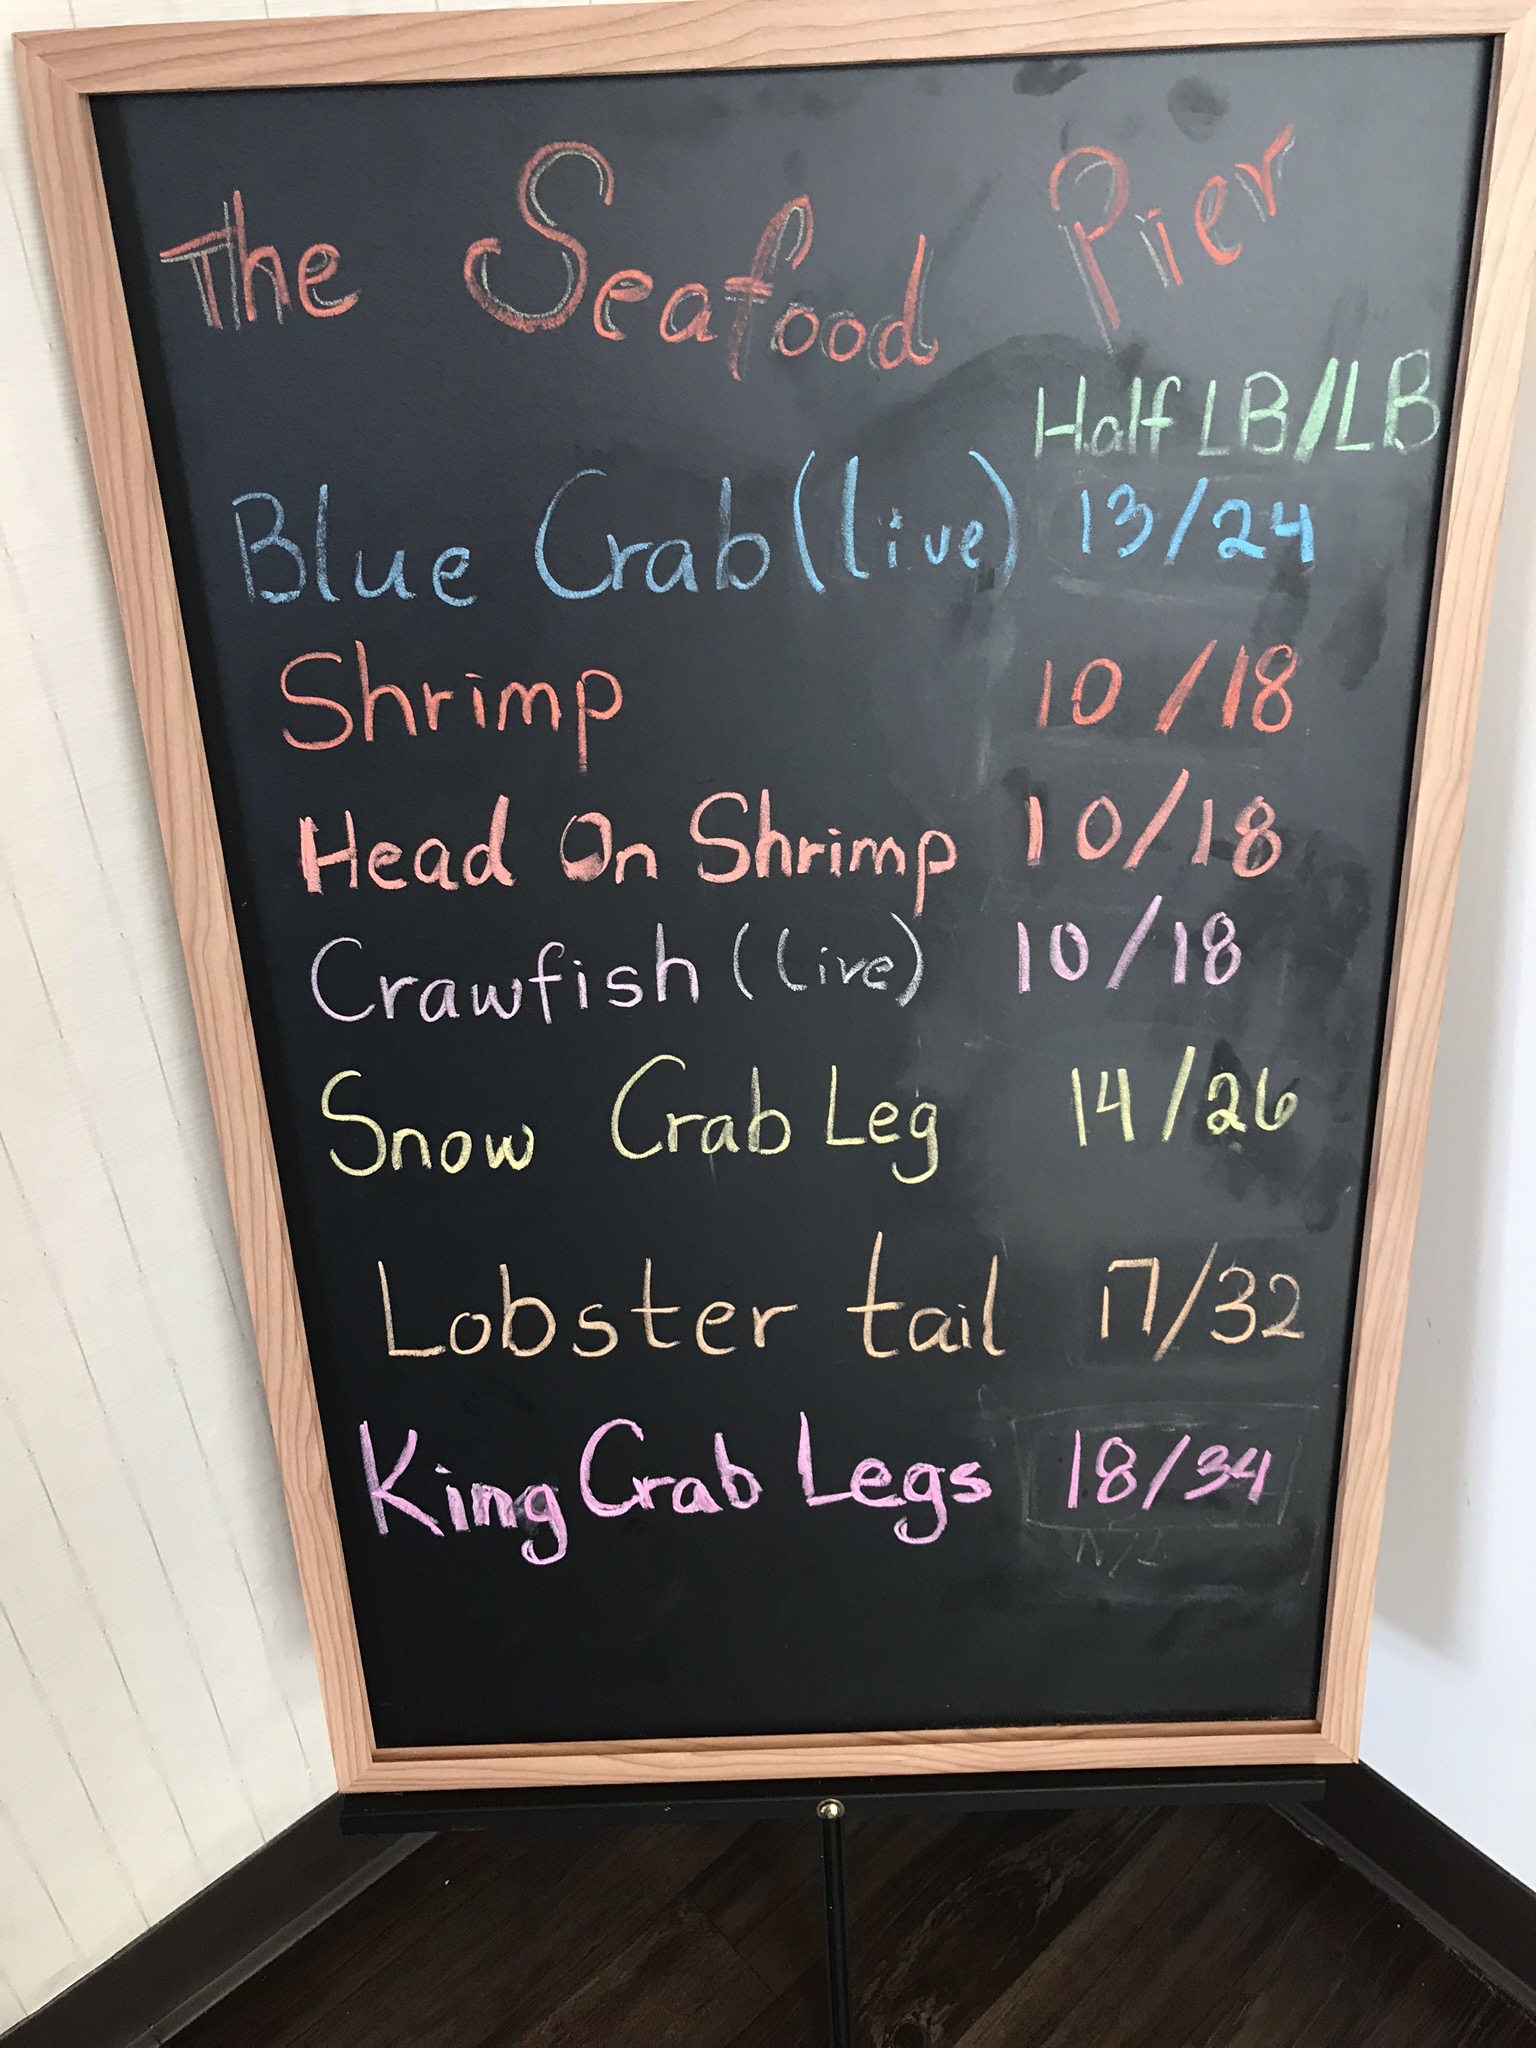 The Seafood Pier
Half LB/LB
Blue Crab (live) 13/24
Shrimp 10/18
Head On Shrimp 10/18
Crawfish (live) 10/18
Snow Crab Leg 14/26
Lobster tail 17/32
King Crab Legs 18/34